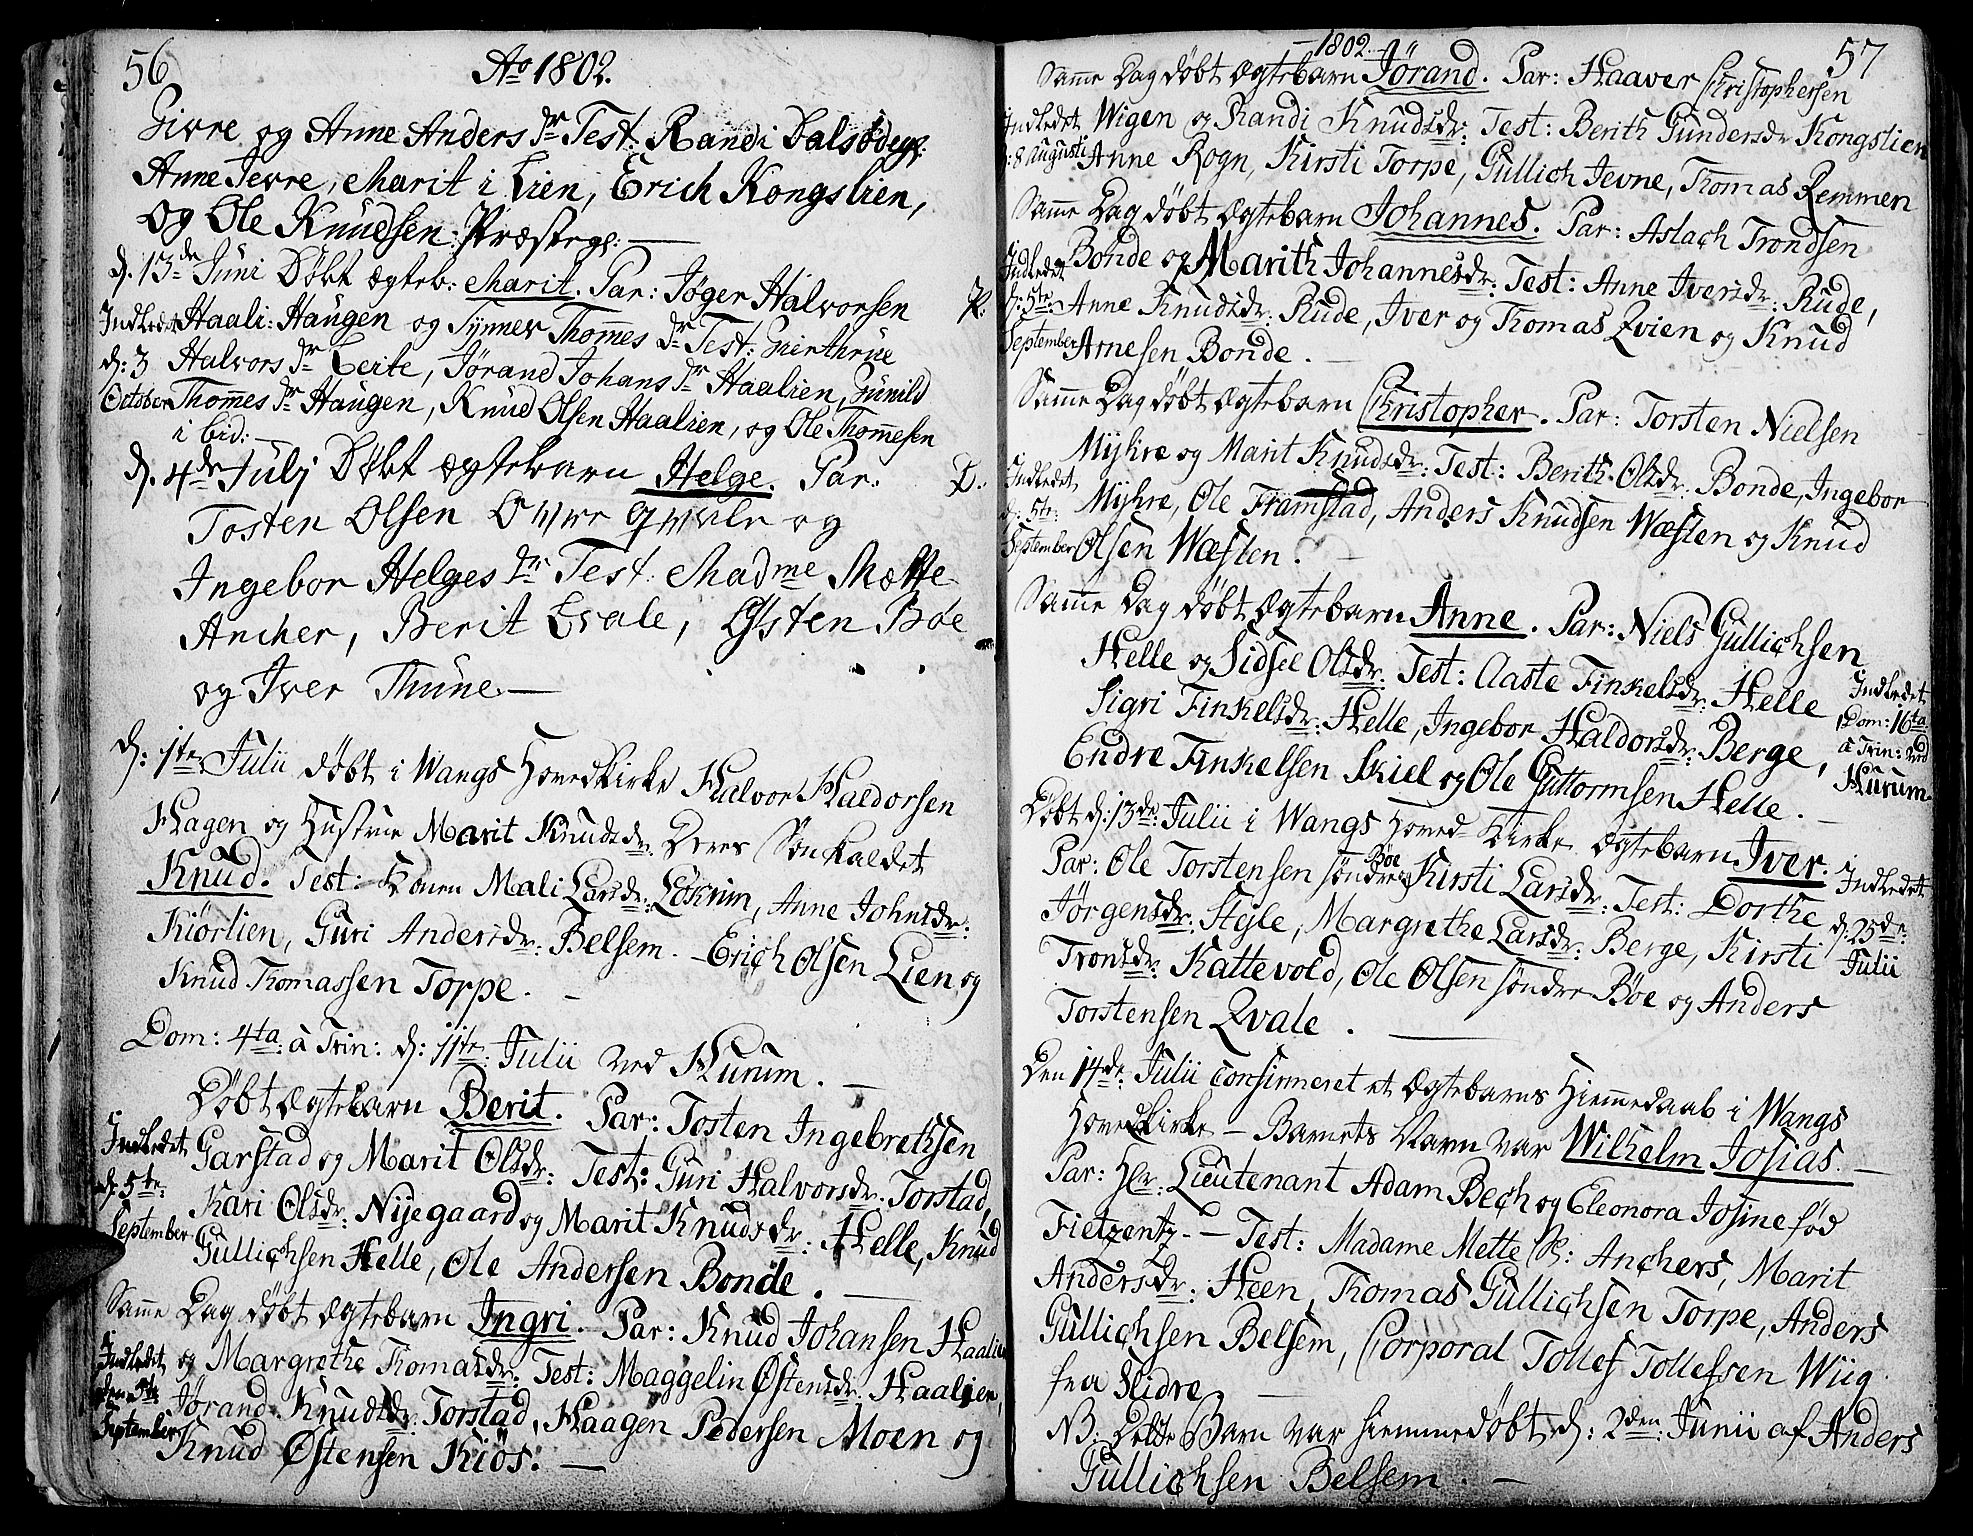 56
Ao 1802.
Givre og Anne Anders dr Test: Randi Dalsødegr:
Anne Jevre, Marit i Lien, Erich Kongslien,
og Ole Knudsen Præstegr: —
d. 13de Juni Døbt ægteb: Marit. Par: Jøger Halvorsen
Indledet Haali: Haugen og Synner Thomes dr Test:
d: 3 Halvors dr Leite, Jørand Johans dr Haalien, Gunild
October Thommes dr Haugen, Knud Olsen Haalien, og Ole Thommesen
ibid: —
d. 4de Julj Døbt ægtebarn Helge. Par.
Tosten Olsen og
Ingebor Helges dr Test. Madme Mætte
Ancher, Berit Qvale, Østen Bøe
og Iver Thune —
d: 1te Julii døbt i Wangs Hovedkirke Halvor Haldorsen
Hagen og Hustrue Marit Knudsdr. Deres Søn kaldet
Knud. Test: Konen Mali Larsdr: Løkrim, Anne Johnsdr:
Kiørlien, Guri Andersdr: Belsem. – Erich Olsen Lien og
Knud Thomassen Torpe. –
Dom: 4ta à Trin: d: 11te Julii ved Hurum. —
Døbt Ægtebarn Berit. Par: Tosten Ingebrethsen
Indledet Garstad og Marit Olsdr: Test: Guri Halvorsdr. Torstad,
d: 5te: Kari Olsdr: Nijegaard og Marit Knudsdr: Helle, Knud
September Gullichsen Helle, Ole Andersen Bonde. —
Samme Dag døbt Ægtebarn Ingri. Par: Knud Johansen Haalien
Indledet og Margrethe Thomasdr. Test: Maggelin Østensdr. Haalien,
den 5te Jørand Knudsdr: Torstad, Haagen Pedersen Moen og
September Knud Østensen Kiös. —
– 1802. –
57
Samme Dag døbt Ægtebarn Jörand. Par: Haaver Christophersen
Indledet Wigen og Randi Knudsdr: Test: Berith Gundersdr Kongslien
d: 8 Augusti Anne Rogn, Kirsti Torpe, Gullich Jevne, Thomas Remmen
Samme Dag døbt Ægtebarn Johannes. Par: Aslach Trondsen
Indledet Bonde og Marith Johannesdr: Test: Anne Iversdr: Rude,
d: 5te Anne Knudsdr: Rude, Iver og Thomas Qvien og Knud
September Arnesen Bonde. —
Samme Dag døbt Ægtebarn Christopher. Par: Torsten Nielsen
Mijhre og Marit Knudsdr: Test: Berith Olsdr: Bonde, Ingebor
Indledet Mijhre, Ole Framstad, Anders Knudsen Wæslen og Knud
d: 5te: September Olsen Wæslen. –
Samme Dag døbt Ægtebarn Anne. Par: Niels Gullichsen
Helle og Sidsel Olsdr: Test: Aaste Finkelsdr: Helle Indledet
Sigri Finkelsdr: Helle, Ingebor Haldorsdr: Berge, Dom: 16ta
Endre Finkelsen Skiel og Ole Guttormsen Helle. – à Trin: ved Hurum
Døbt d: 13de: Julii i Wangs Hoved-Kirke Ægtebarn Iver.
Par: Ole Torstensen söndre Bøe og Kirsti Larsdr: Test: Dorthe Indledet
Jørgensdr: Style, Margrethe Larsdr: Berge, Kirsti d: 25de:
Tronsdr: Kattevold, Ole Olsen söndre Bøe og Anders Julii
Torstensen Qvale. —
Den 14de: Julii Confirmeret et Ægtebarns Hiemmedaab i Wangs
Hovedkirke – Barnets Navn var Wilhelm Josias. –
Par: Hr: Lieutenant Adam Bech og Eleonora Josine fød
Fietzentz. – Test: Madame Mette Anchers, Marit
Andersdr: Heen, Thomas Gullichsen Torpe, Anders
Gullichsen Belsem, Corporal Tollef Tollefsen Wiig
fra Slidre. —
NB: Dette Barn var hiemmedøbt d: 2den: Junii af Anders
Gullichsen Belsem. –